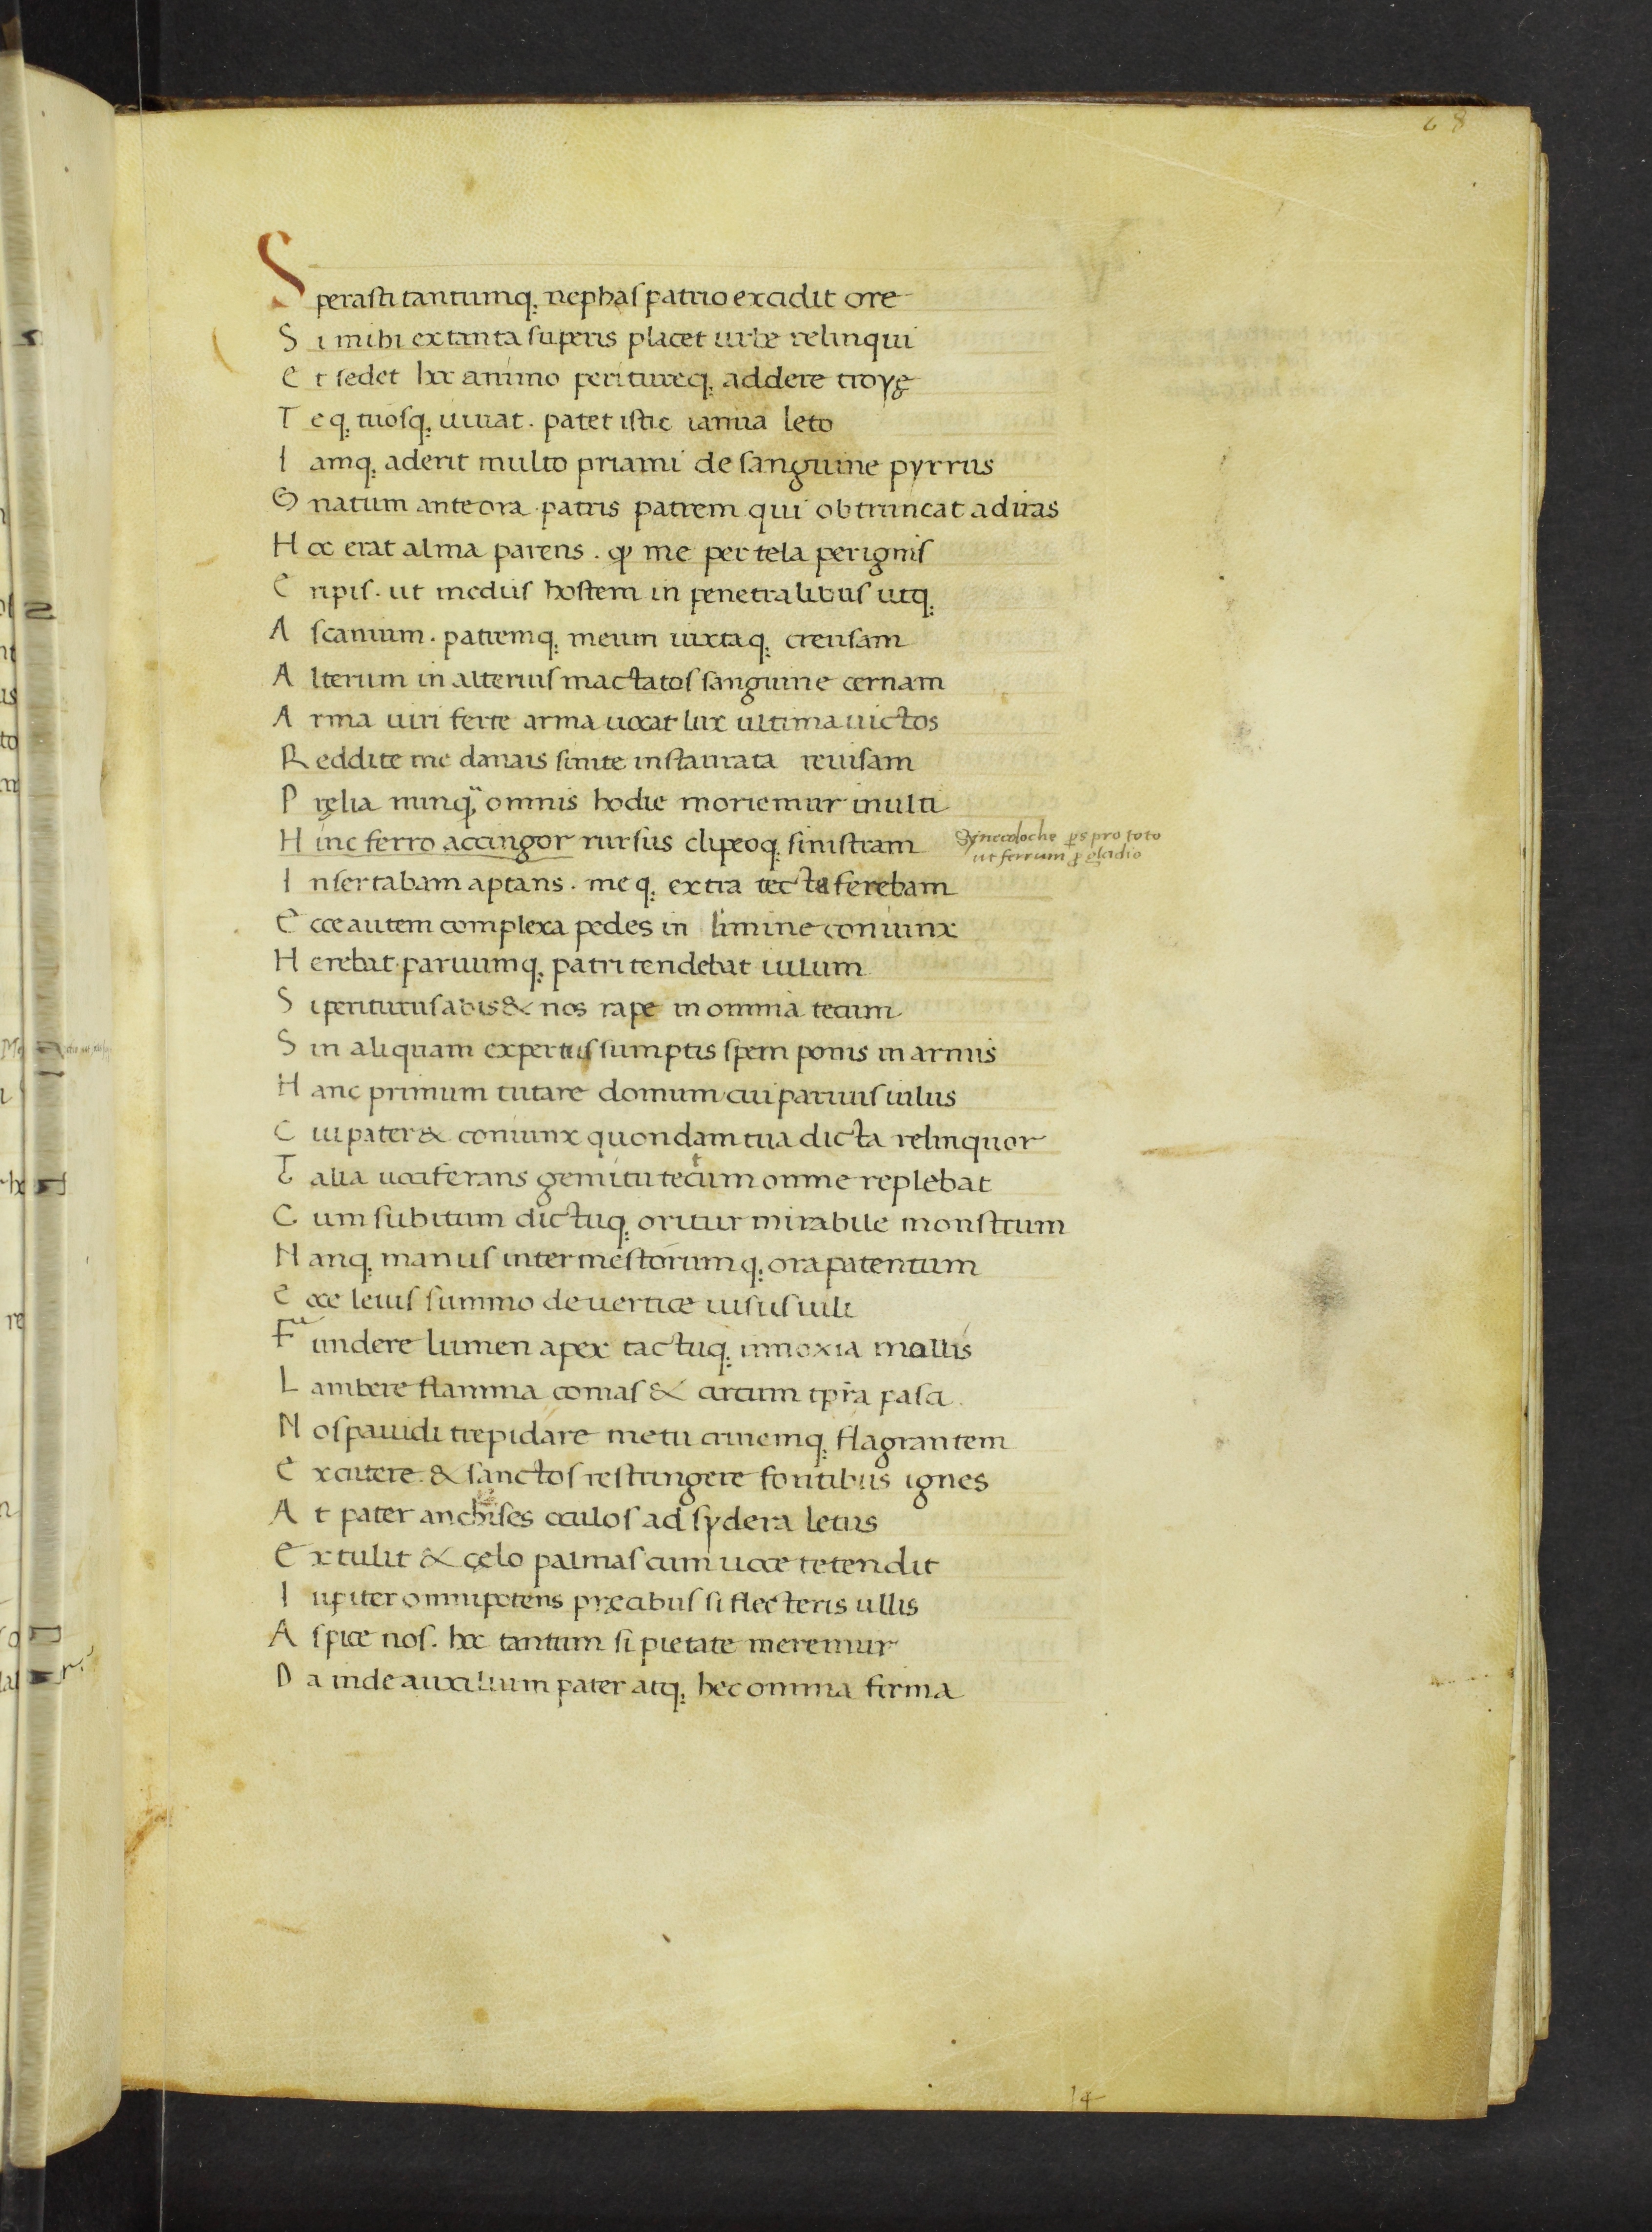 68
Sperasti tantumq; nephas patrio excidit ore
Si mihi ex tanta superis placet urbe relinqui
Et sedet hoc animo perituręq; addere troyę
Teq; tuosq; iuuat. patet istic ianua leto
Iamq; aderit multo priami de sanguine pyrrus
Gnatum ante ora patris patrem qui obtruncat ad aras
Hoc erat alma parens. qđ me per tela per ignis
Eripis. ut mediis hostem in penetralibus utq;
Ascanium. patremq; meum iuxtaq; creusam
Alterum in alterius mactatos sanguine cernam
Arma uiri ferte arma uocat lux ultima uictos
Reddite me danais sinite instaurata reuisam
Pręlia nunq̃ omnis hodie moriemur inulti
Hinc ferro accingor rursus clipeoq; sinistram
Synecdoche ꝑs pro toto
ut ferrum ꝓ gladio
Insertabam aptans. meq; extra tecta ferebam
Ecce autem complexa pedes in limine coniunx
Herebat paruumq; patri tendebat iulum
Si periturus abis & nos rape in omnia tecum
Sin aliquam expertus sumptis spem ponis in armis
Hanc primum tutare domum cui paruus iulus
Cui pater & coniunx quondam tua dicta relinquor
Talia uociferans gemitu tectum omne replebat
Cum subitum dictuq; oritur mirabile monstrum
Nanq; manus inter mestorumq; ora parentum
Ecce leuis summo de uertice uisus iuli
Fundere lumen apex tactuq; innoxia mollis
Lambere flamma comas & circum tp̄ra pasci
Nos pauidi trepidare metu crinemq; flagrantem
Excutere. & sanctos restringere fontibus ignes
At pater anchises oculos ad sydera letus
Extulit & cęlo palmas cum uoce tetendit
Iupiter omnipotens pręcibus si flecteris ullis
Aspice nos. hoc tantum si pietate meremur
Da inde auxilium pater atq; hec omina firma
14